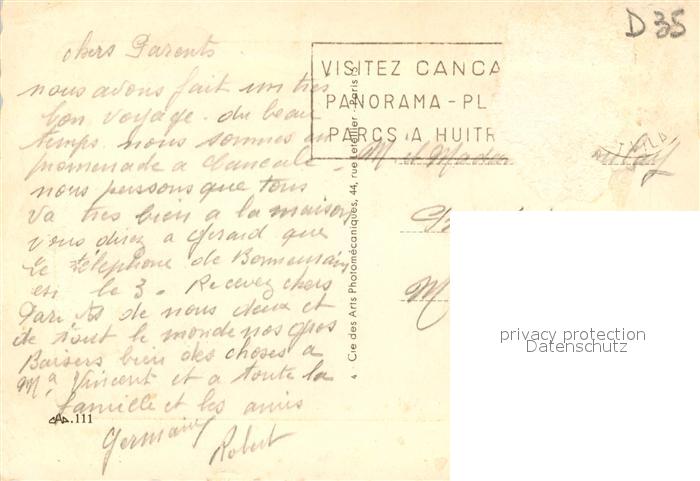 D 35
chers Parents
nous avons fait un tres
bon voyage. du beau
temps nous sommes en
promenade a Cancale
nous penssons que tous
va tres bien a la maison
vous direz a Gerard que
le téléphone de
est le 3. Recevez chers
Parents de nous deux et
de tout le monde nos gros
Baisers bien des choses a
Vincent et a toute la
famille et les amis
Germaine
Robert
CAP.111
4 - Cie des Arts Photomécaniques, 44, rue Letellier - Paris
VISITEZ CANCA
PANORAMA - PL
PARCS A HUITR
M. et Madam
M
privacy protection
Datenschutz